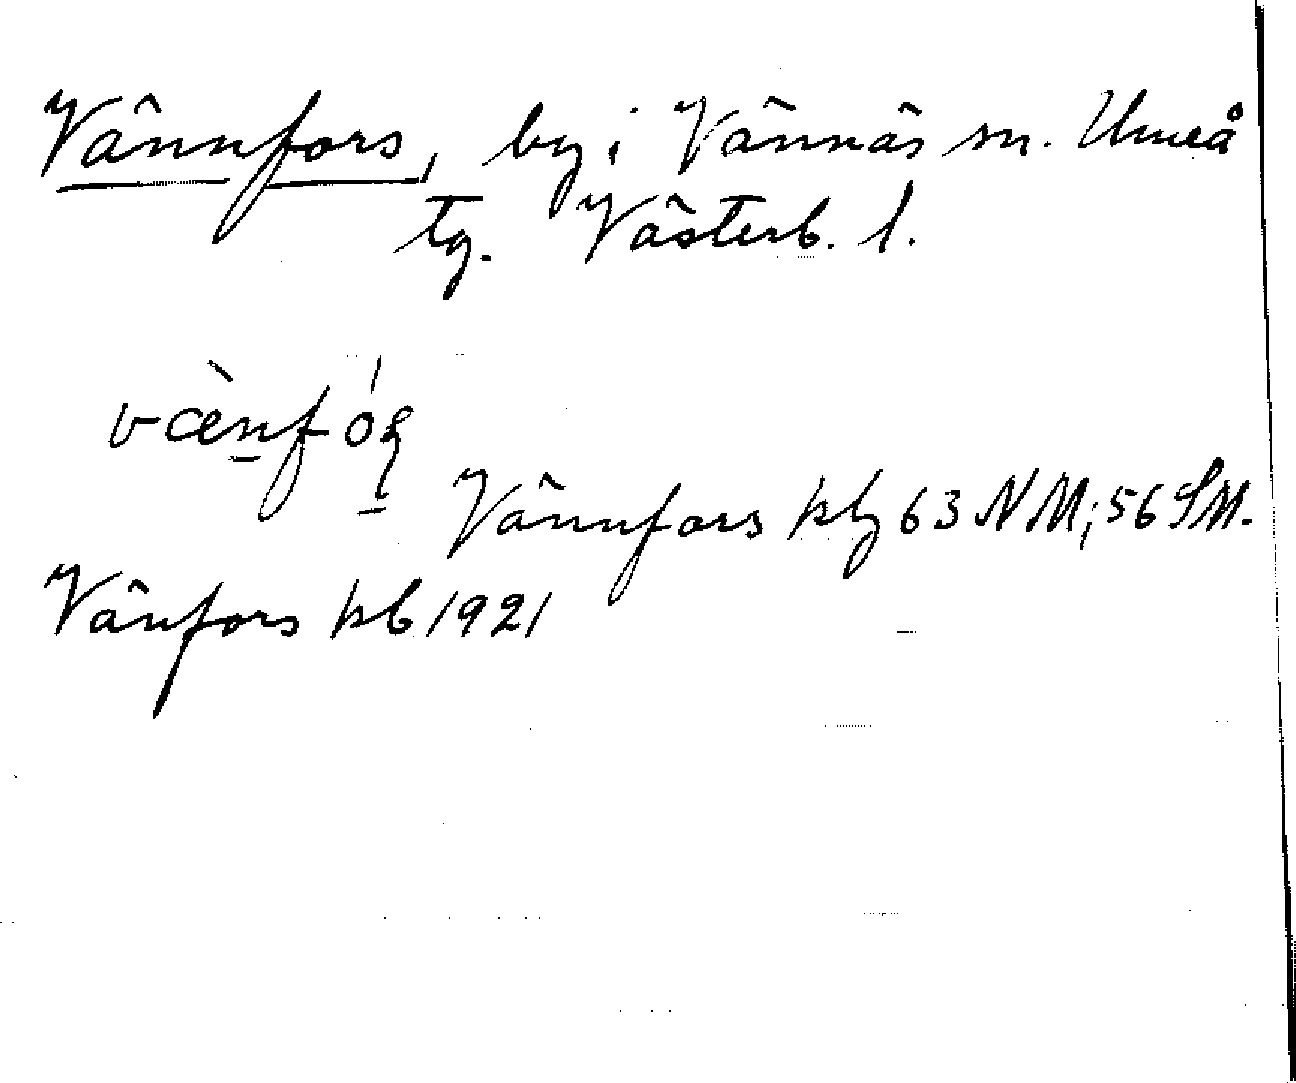 Vännfors, by i Vännäs sn. Umeå
tg. Västerb. l.
væ̀nfóʂ
Vännfors kbl 63 NV; 56 SV.
Vänfors kb 1921